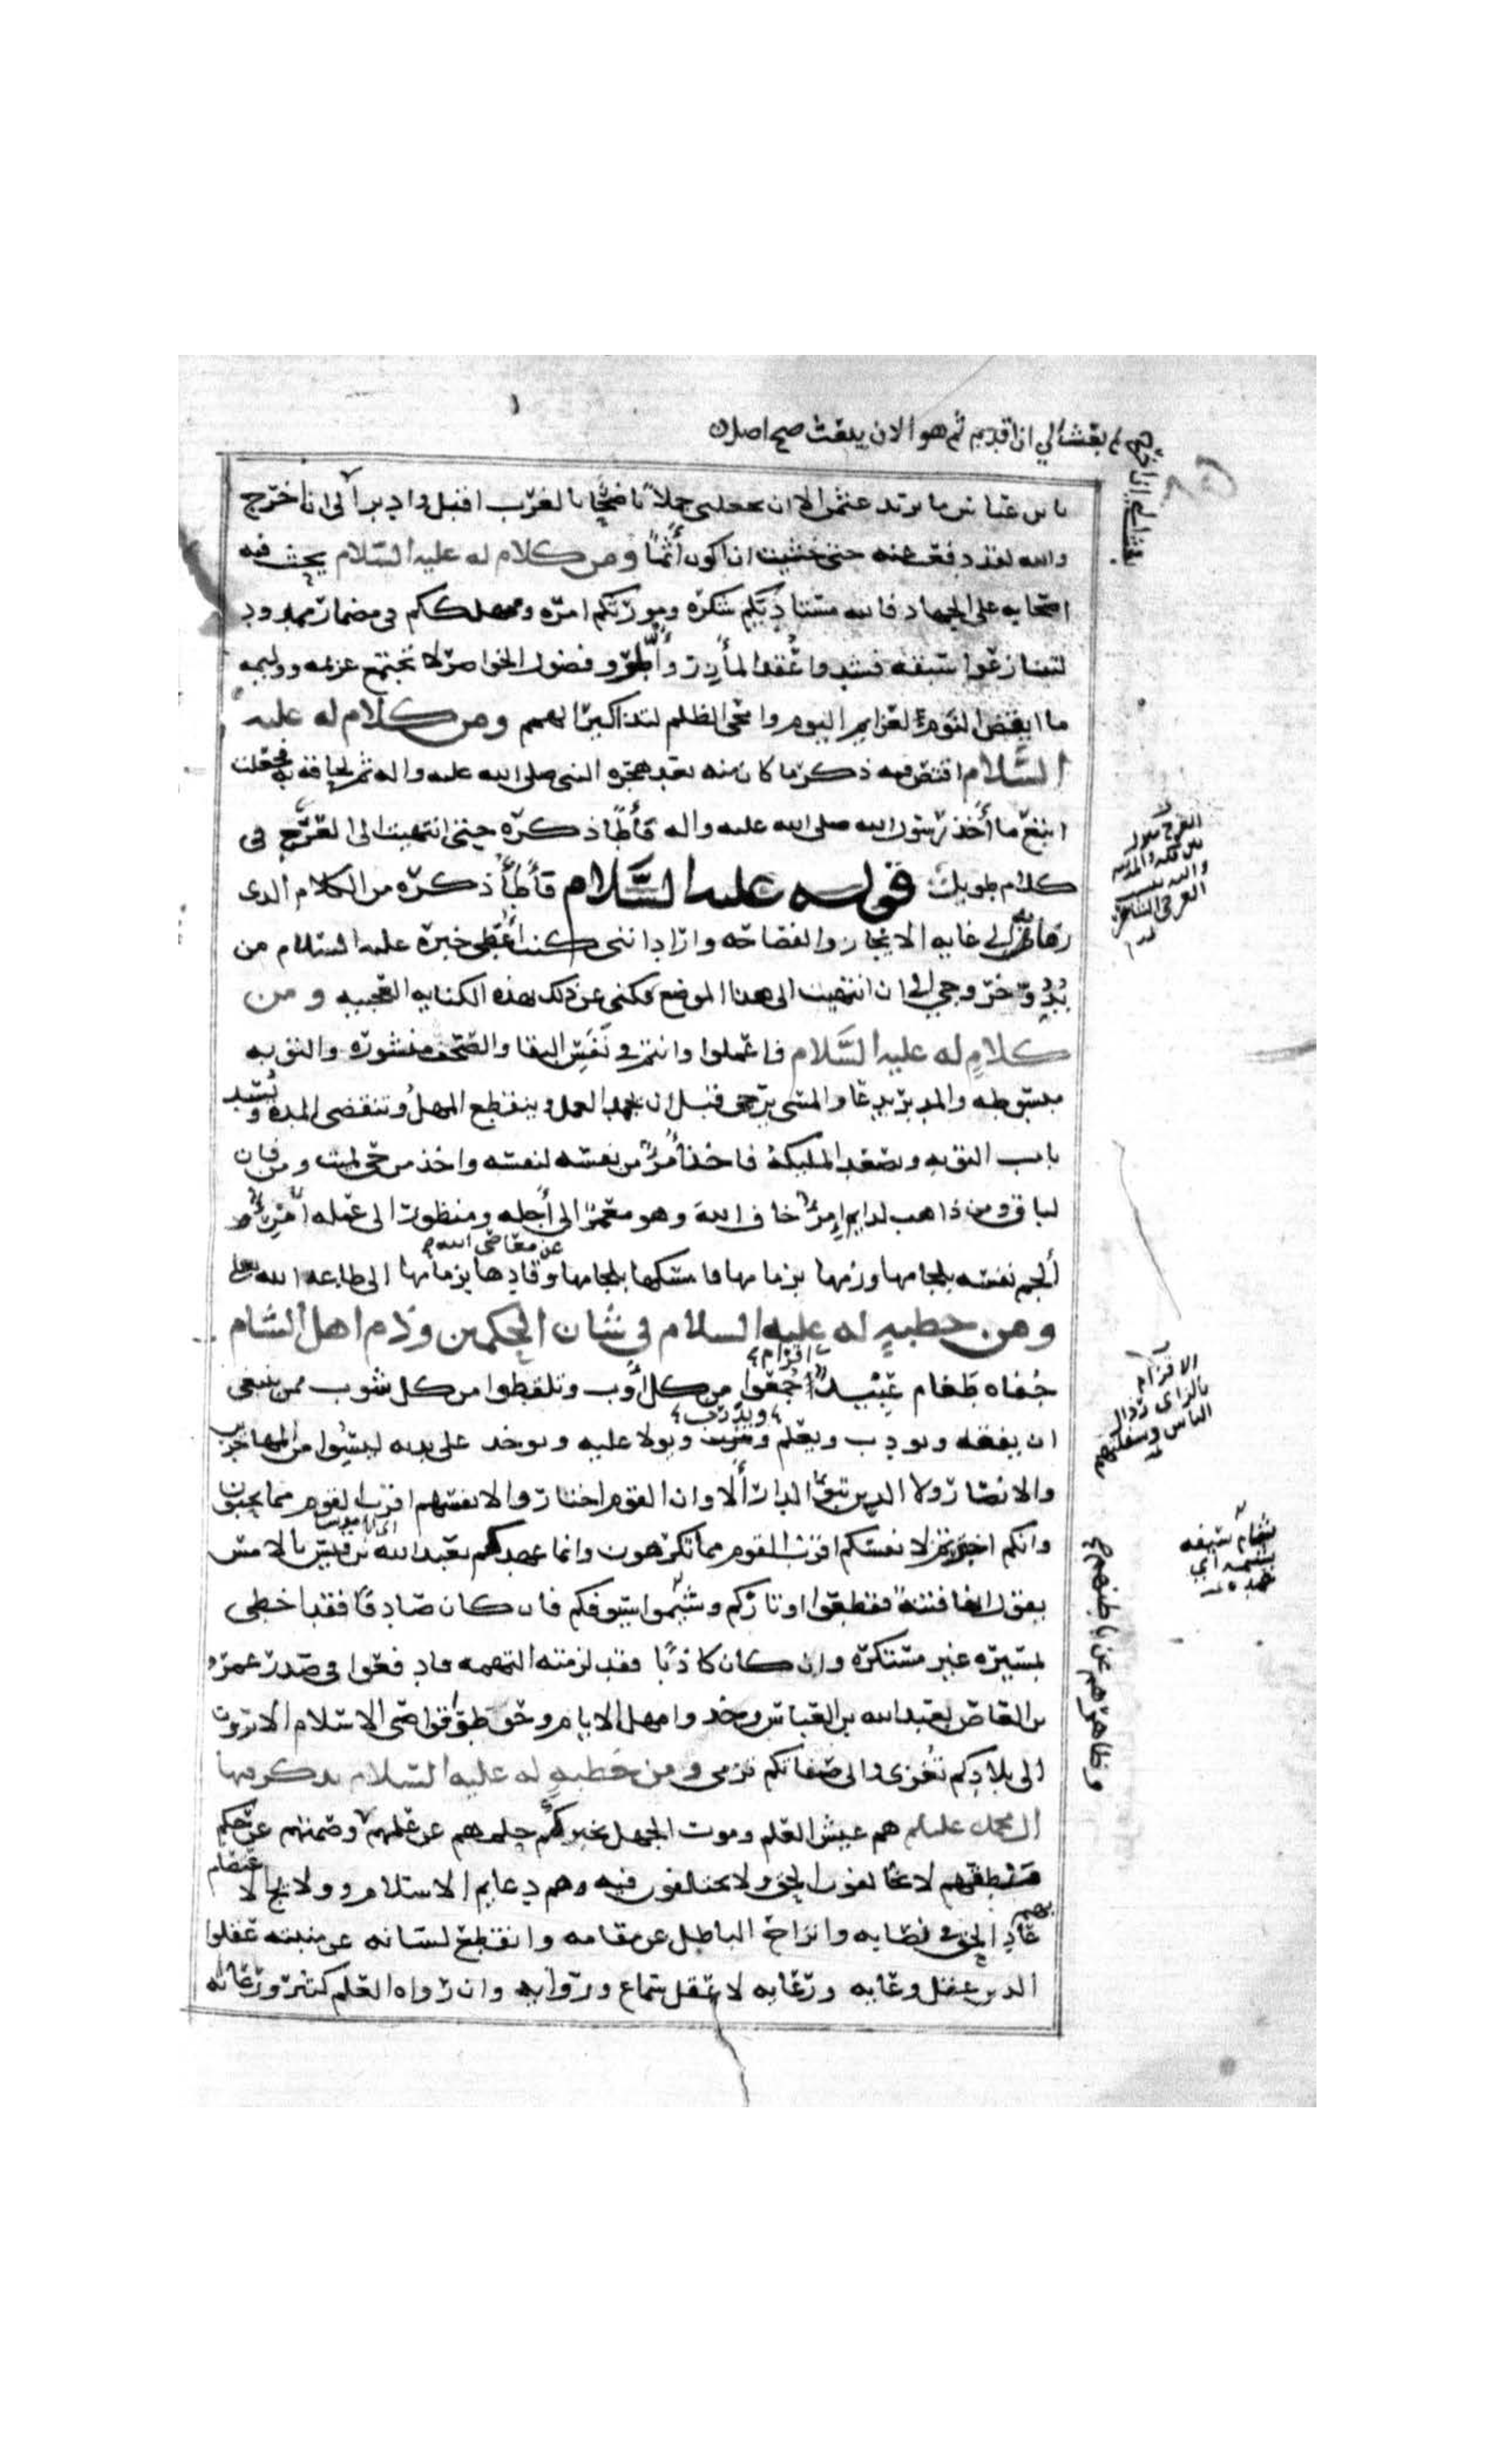 بعث الي ان اقدم ثم هو الان يبعث صح اصل
يابن عباس ما يريد عثمن الا ان يجعلني جملا ناضحا بالغرب اقبل وادبر الى ان اخرج
والله لقد دفعت عنه حتى خشيت ان اكون آثما ومن كلام له عليه السلام يحث فيه
اصحابه على الجهاد فالله مستاديكم شكره ومورثكم امره وممهلكم في مضمار ممدود
لتتنازعوا سبقه فشدوا عقد المآزر واطووا فضول الخواصر لا تجتمع عزيمه ووليمه
ما انقض النوم لعزايم اليوم وامحى الظلم لتذاكير الهمم ومن كلام له عليه
السلام اقتص فيه ذكر ما كان منه بعد هجره النبي صلى الله عليه واله ثم لحاقه به فجعلت
اتبع ماخذ رسول الله صلى الله عليه واله فأطأ ذكره حتى انتهيت الى العرج في
كلام طويل قوله عليه السلام فأطأ ذكره من الكلام الذى
رمى به الى غايه الايجاز والفصاحه واراد اننى كنت أعطى خبره عليه السلام من
بدو خروجي الى ان انتهيت الى هذا الموضع فكنى عن ذلك بهذه الكنايه العجيبه ومن
كلام له عليه السلام فاعملوا وانتم في نفس البقا والصحف منشوره والتوبه
مبسوطه والمدبر يدعا والمسى يرجى قبل ان يجمد العمل وينقطع المهل وتنقضى المده وتسد
باب التوبه وتصعد المليكة فاخذ أمرؤ من نفسه لنفسه واخذ من حي لميت ومن فان
لباق ومن ذاهب لدايم امرؤ خاف الله وهو معمر الى أجله ومنظور الى عمله امرؤ
ألجم نفسه بلجامها وزمها بزمامها فامسكها بلجامها عن معاصى الله وقادها بزمامها الى طاعه الله
ومن خطبه له عليه السلام في شان الحكمين وذم اهل الشام
جفاه طغام عبيد اقزام جمعوا من كل أوب وتلقطوا من كل شوب ممن ينبغى
ان يفقه ويودب ويعلم ويدرب ويولا عليه ويوخذ على يديه ليسوا من المهاجرين
والانصار ولا الذين تبوؤا الدار ألا وان القوم اختاروا لانفسهم اقرب القوم مما يحبون
وانكم اخترتم لانفسكم اقرب القوم مما تكرهون وانما عهدكم بعبد الله بن قيس بالامس
يقول انها فتنة فقطعوا اوتاركم وشيموا سيوفكم فان كان صادقا فقد اخطى
بمسيره غير مستكره وان كان كاذبا فقد لزمته التهمه فادفعوا في صدر عمرو
بن العاص بعبد الله بن العباس وخذوا مهل الايام وحوطوا قواصى الاسلام الا ترون
الى بلادكم تغزى والى صفاتكم ترمى ومن خطبه له عليه السلام يذكر فيها
ال محمد عليلم هم عيش العلم وموت الجهل يخبركم حلمهم عن علمهم وصمتهم عن حكم
منطقهم لا يخالفون الحق ولا يختلفون فيه وهم دعايم الاسلام وولايج الاعتصام
بهم عاد الحق في نصابه وانزاح الباطل عن مقامه وانقطع لسانه عن منبته عقلوا
الدين عقل وعايه ورعايه لا عقل سماع وروايه وان رواه العلم كثير ورعاته
العرج منزل
بين مكه والمدينه
واليه ينسب
العرجي الشاعر
الاقزام
بالزاى رذال
الناس وسفلتهم
شام سيفه
وظاهرهم عن باطنهم